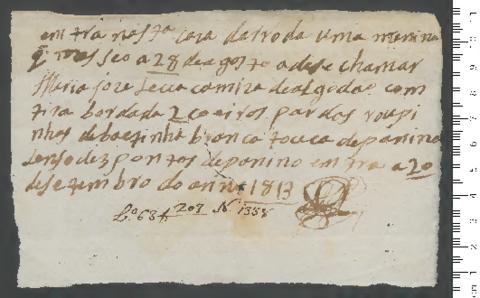 entra nesta caza da roda uma menina
q nasseo a 28 de agosto a de se chamar
Maria joze leva camiza de algodaõ com
tira bordada 2 coeiros pardos roupi
nhos de baetinha branca touca de panino
lenso de z pontos de panino entra a 20
de setembro do anno 1813
Lº 63 f 207 N 1358